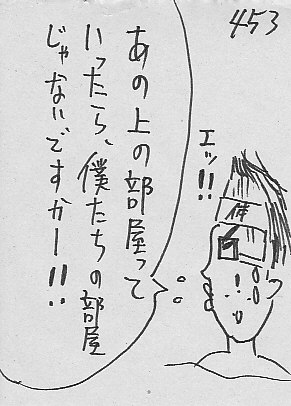 453
エッ!!
あの上の部屋って
いったら、僕たちの部屋
じゃないですかー!!